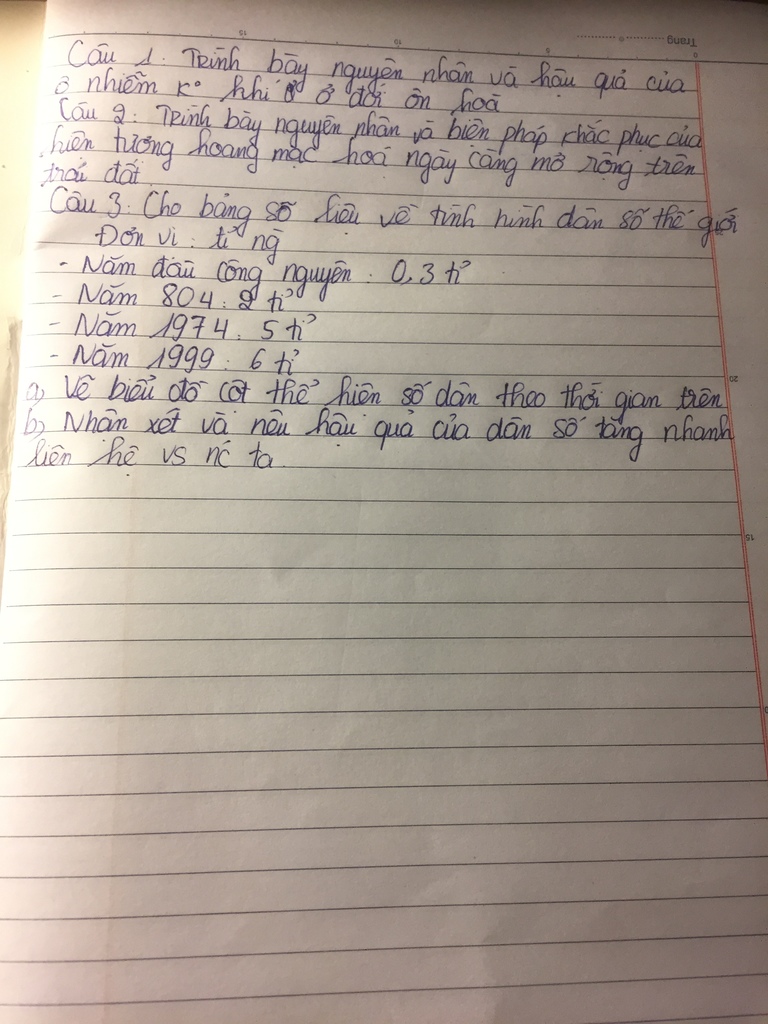 Trang
Câu 1. Trình bày nguyên nhân và hậu quả của
ô nhiễm k° khí ở ở đới ôn hoà
Câu 2: Trình bày nguyên nhân và biện pháp khắc phục của
hiện tượng hoang mạc hoá ngày càng mở rộng trên
trái đất
Câu 3: Cho bảng số liệu về tình hình dân số thế giới
Đơn vị: tỉ ng
- Năm đầu công nguyên: 0,3 tỉ
- Năm 804: 2 tỉ
- Năm 1974: 5 tỉ
- Năm 1999: 6 tỉ
a, Vẽ biểu đồ cột thể hiện số dân theo thời gian trên
b, Nhận xét và nêu hậu quả của dân số tăng nhanh
liên hệ vs nc ta